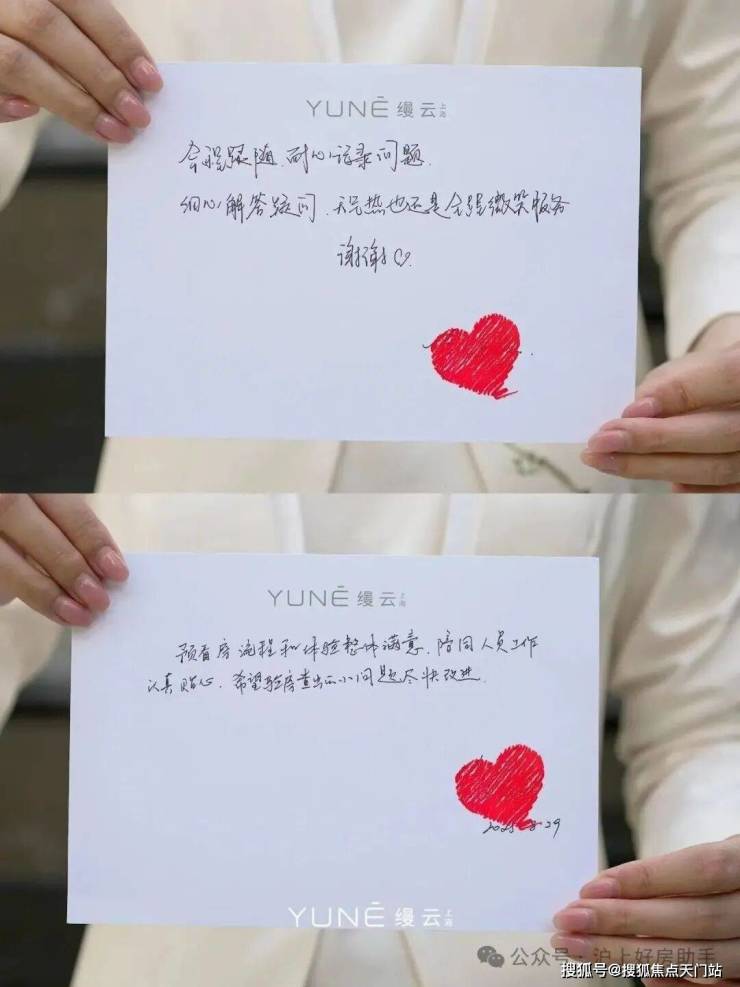 YUNĒ 缦云 上海
全程跟随、耐心记录问题、
细心解答疑问、天气热也还是全程微笑服务
谢谢♡.
YUNĒ 缦云 上海
预看房流程和体验整体满意、陪同人员工作
认真贴心、希望验房查出的小问题尽快改进.
2025-8-29
YUNĒ 缦云 上海
公众号·沪上好房助手
搜狐号@搜狐焦点天门站